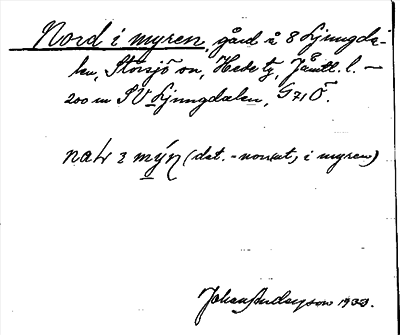 Nord i myren, gård å 8 Ljungda-
len, Storsjö sn, Hede tg, Jämtl. l. —
200 m SV Ljungdalen, G71Ö.
na i mýn (dat. -nomat, i myren)
Johan Anderson 1933.